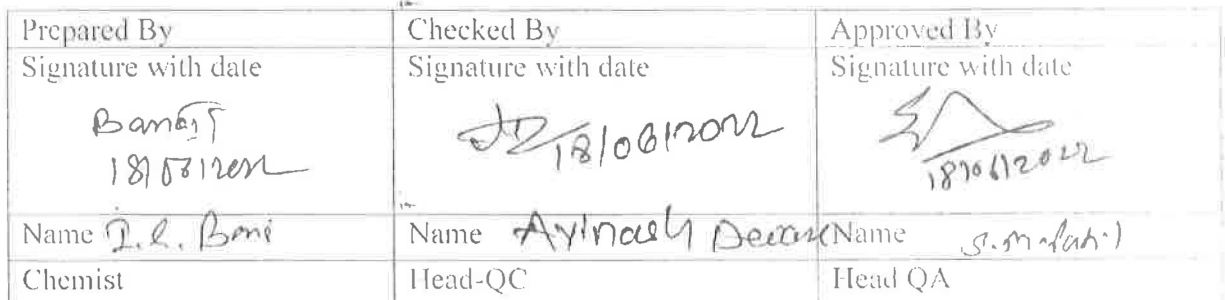 Prepared By Checked By Approved By
Signature with date Signature with date Signature with date
18/06/2022 18/06/2022 18/06/2022
Name Name Avinash Name
Chemist Head-QC Head QA